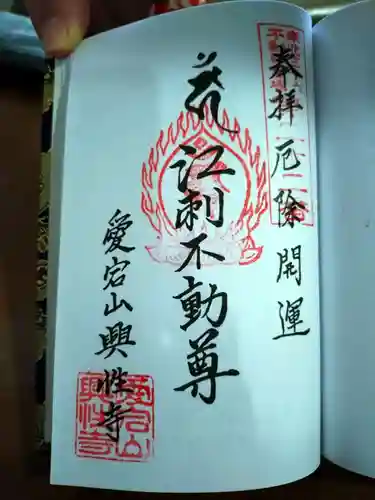 奉拝 厄除開運
江刺不動尊
愛宕山興性寺
愛宕山
興性寺